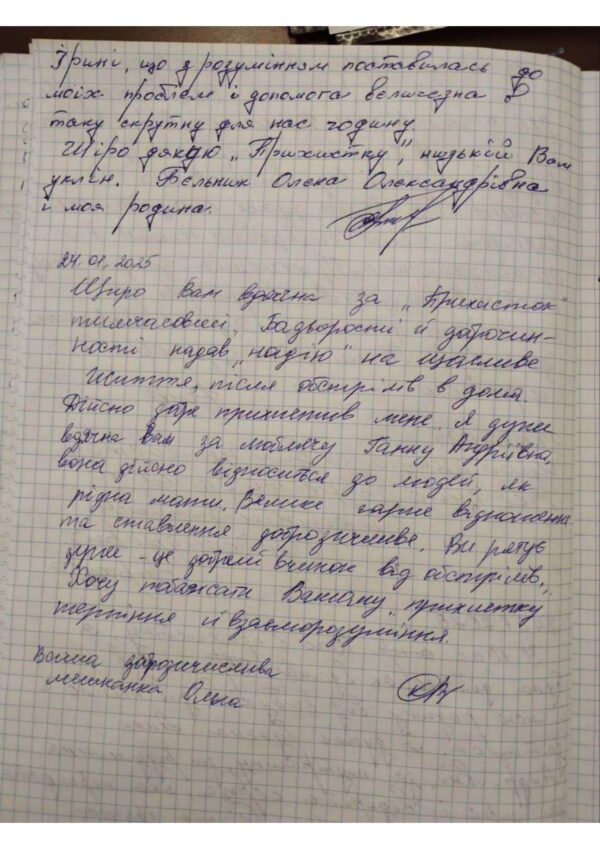 Ірині, що з розумінням поставилась до
моїх проблем і допомога величезна в
таку скрутну для нас годину.
Щіро дякую „Прихистку", низькій Вам
уклін. Бєльник Олєна Олександрівна
і моя родина.
24.01.2025
Щиро Вам вдячна за „Прихисток"
тимчасовий, Бадьорости й доброчин-
ності надав „надію" на щасливе
життя, після обстрілів в дома.
Дійсно добре прихистив мене. Я дуже
вдячна Вам за люблячу Ганну Андріївна,
вона дійсно відноситься до людей, як
рідна мати. Велике гарне відношення
та ставлення доброзичливе. Ви
дуже - це добрий вчинок від обстрілів.
Хочу побажати Вашому „прихистку
терпіння й взаєморозуміння.
Ваша доброзичислива
мешканка Ольга